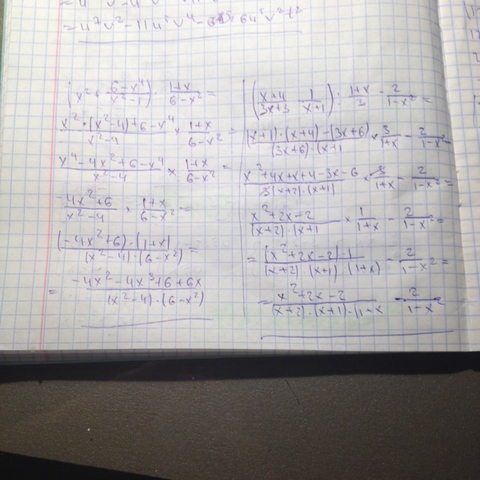 = 4²v² - 11u⁵v⁴ - 6u⁵v²t²
(x² + (6-x⁴)/(x²-1)) · (1+x)/(6-x²) =
(x² · (x²-4) + 6 - x⁴)/(x²-4) × (1+x)/(6-x²) =
(x⁴ - 4x² + 6 - x⁴)/(x²-4) × (1+x)/(6-x²) =
(-4x² + 6)/(x²-4) · (1+x)/(6-x²) =
((-4x²+6) · (1+x))/((x²-4) · (6-x²)) =
= (-4x² - 4x³ + 6 + 6x)/((x²-4) · (6-x²))
((x+4)/(3x+3) - 1/(x+1)) : (1+x)/3 - 2/(1-x²) =
((x+1) · (x+4) - (3x+6))/((3x+6) · (x+1) × 3/(1+x) - 2/(1-x²) =
(x² + 4x + x + 4 - 3x - 6)/(3(x+2) · (x+1)) × 3/(1+x) - 2/(1-x²) =
(x² + 2x - 2)/((x+2) · (x+1) × 1/(1+x) - 2/(1-x²) =
= ((x² + 2x - 2) · 1)/((x+2) · (x+1) · (1+x)) - 2/(1-x²) =
= (x² + 2x - 2)/((x+2) · (x+1) · (1+x) - 2/(1-x²)